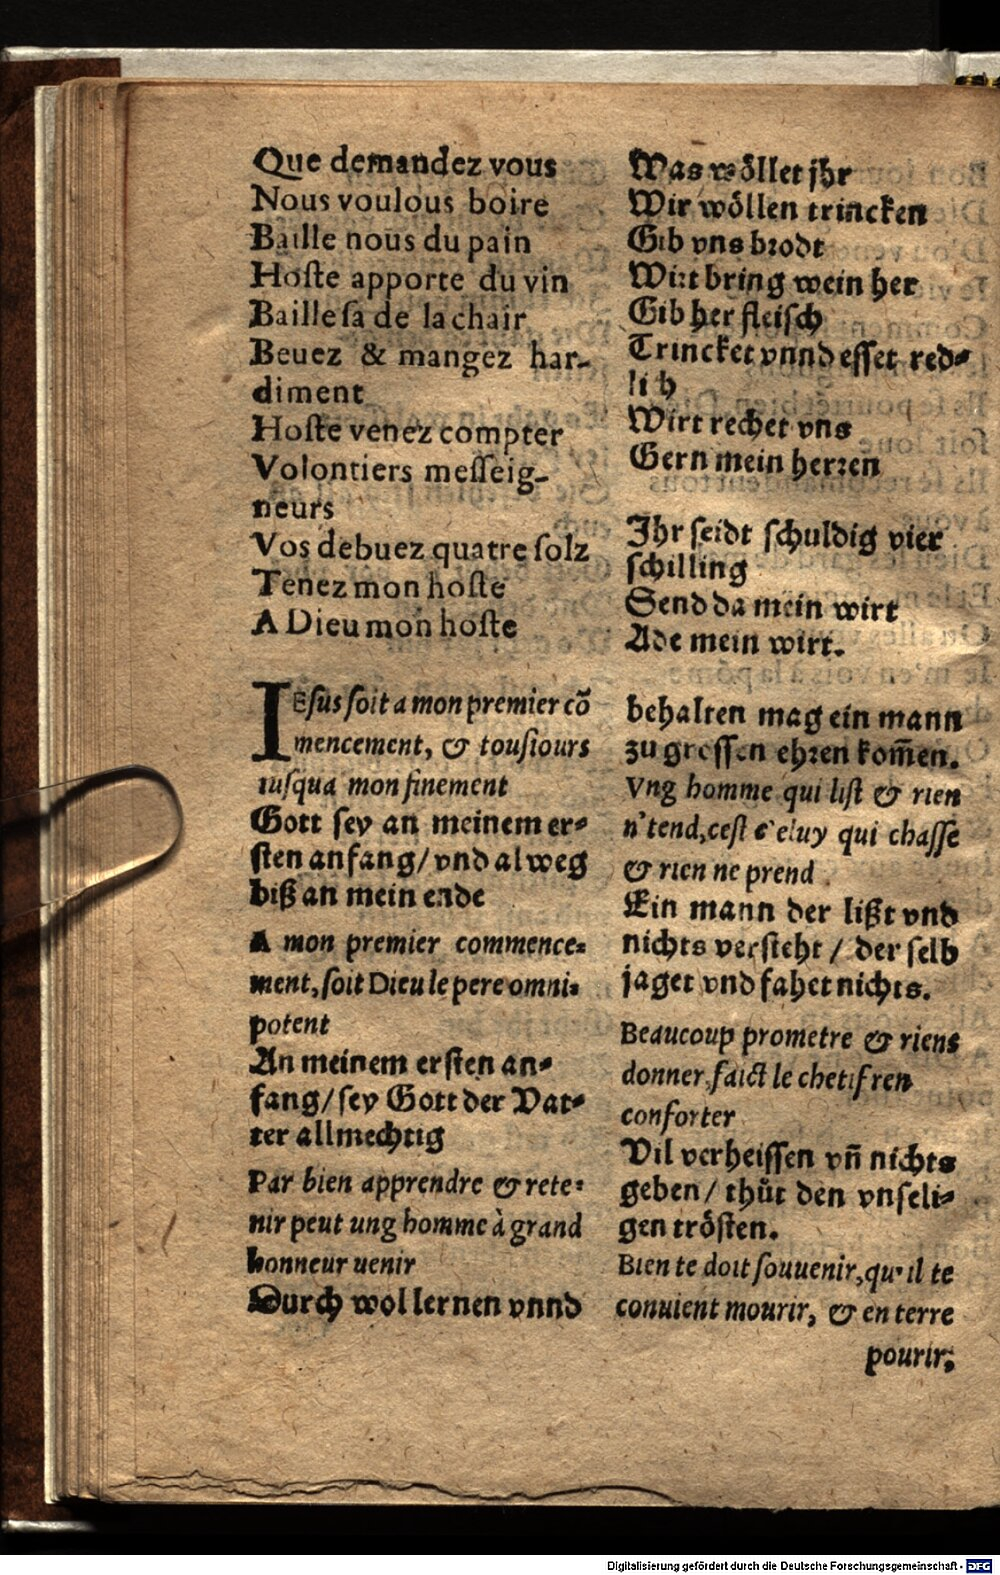 Que demandez vous
Nous voulous boire
Baille nous du pain
Hoſte apporte du vin
Baille ſa de la chair
Beuez & mangez har-
diment
Hoſte venez compter
Volontiers meſſeig-
neurs
Vos debuez quatre ſolz
Tenez mon hoſte
A Dieu mon hoſte
Was wöllet jhr
Wir wöllen trincken
Gib vns brodt
Wirt bring wein her
Gib her fleiſch
Trincket vnnd eſſet red⸗
lich
Wirt rechet vns
Gern mein herren
Ihr ſeidt ſchuldig vier
ſchilling
Send da mein wirt
Ade mein wirt.
IEſus ſoit a mon premier cõ
mencement, & touſiours
iuſqua mon finement
Gott ſey an meinem er⸗
ſten anfang/ vnd alweg
biß an mein ende
A mon premier commence⸗
ment, ſoit Dieu le pere omni⸗
potent
An meinem erſten an⸗
fang/ ſey Gott der Vat⸗
ter allmechtig
Par bien apprendre & rete⸗
nir peut ung homme à grand
honneur uenir
Durch wol lernen vnnd
behalten mag ein mann
zu groſſen ehren kom̃en.
Vng homme qui liſt & rien
n'tend, ceſt celuy qui chaſſe
& rien ne prend
Ein mann der lißt vnd
nichts verſteht / der ſelb
jaget vnd fahet nichts.
Beaucoup prometre & riens
donner, faict le chetif ren
conforter
Vil verheiſſen vñ nichts
geben / thůt den vnſeli⸗
gen tröſten.
Bien te doit ſouuenir, qu'il te
conuient mourir, & en terre
pourir;
Digitalisierung gefördert durch die Deutsche Forschungsgemeinschaft - DFG